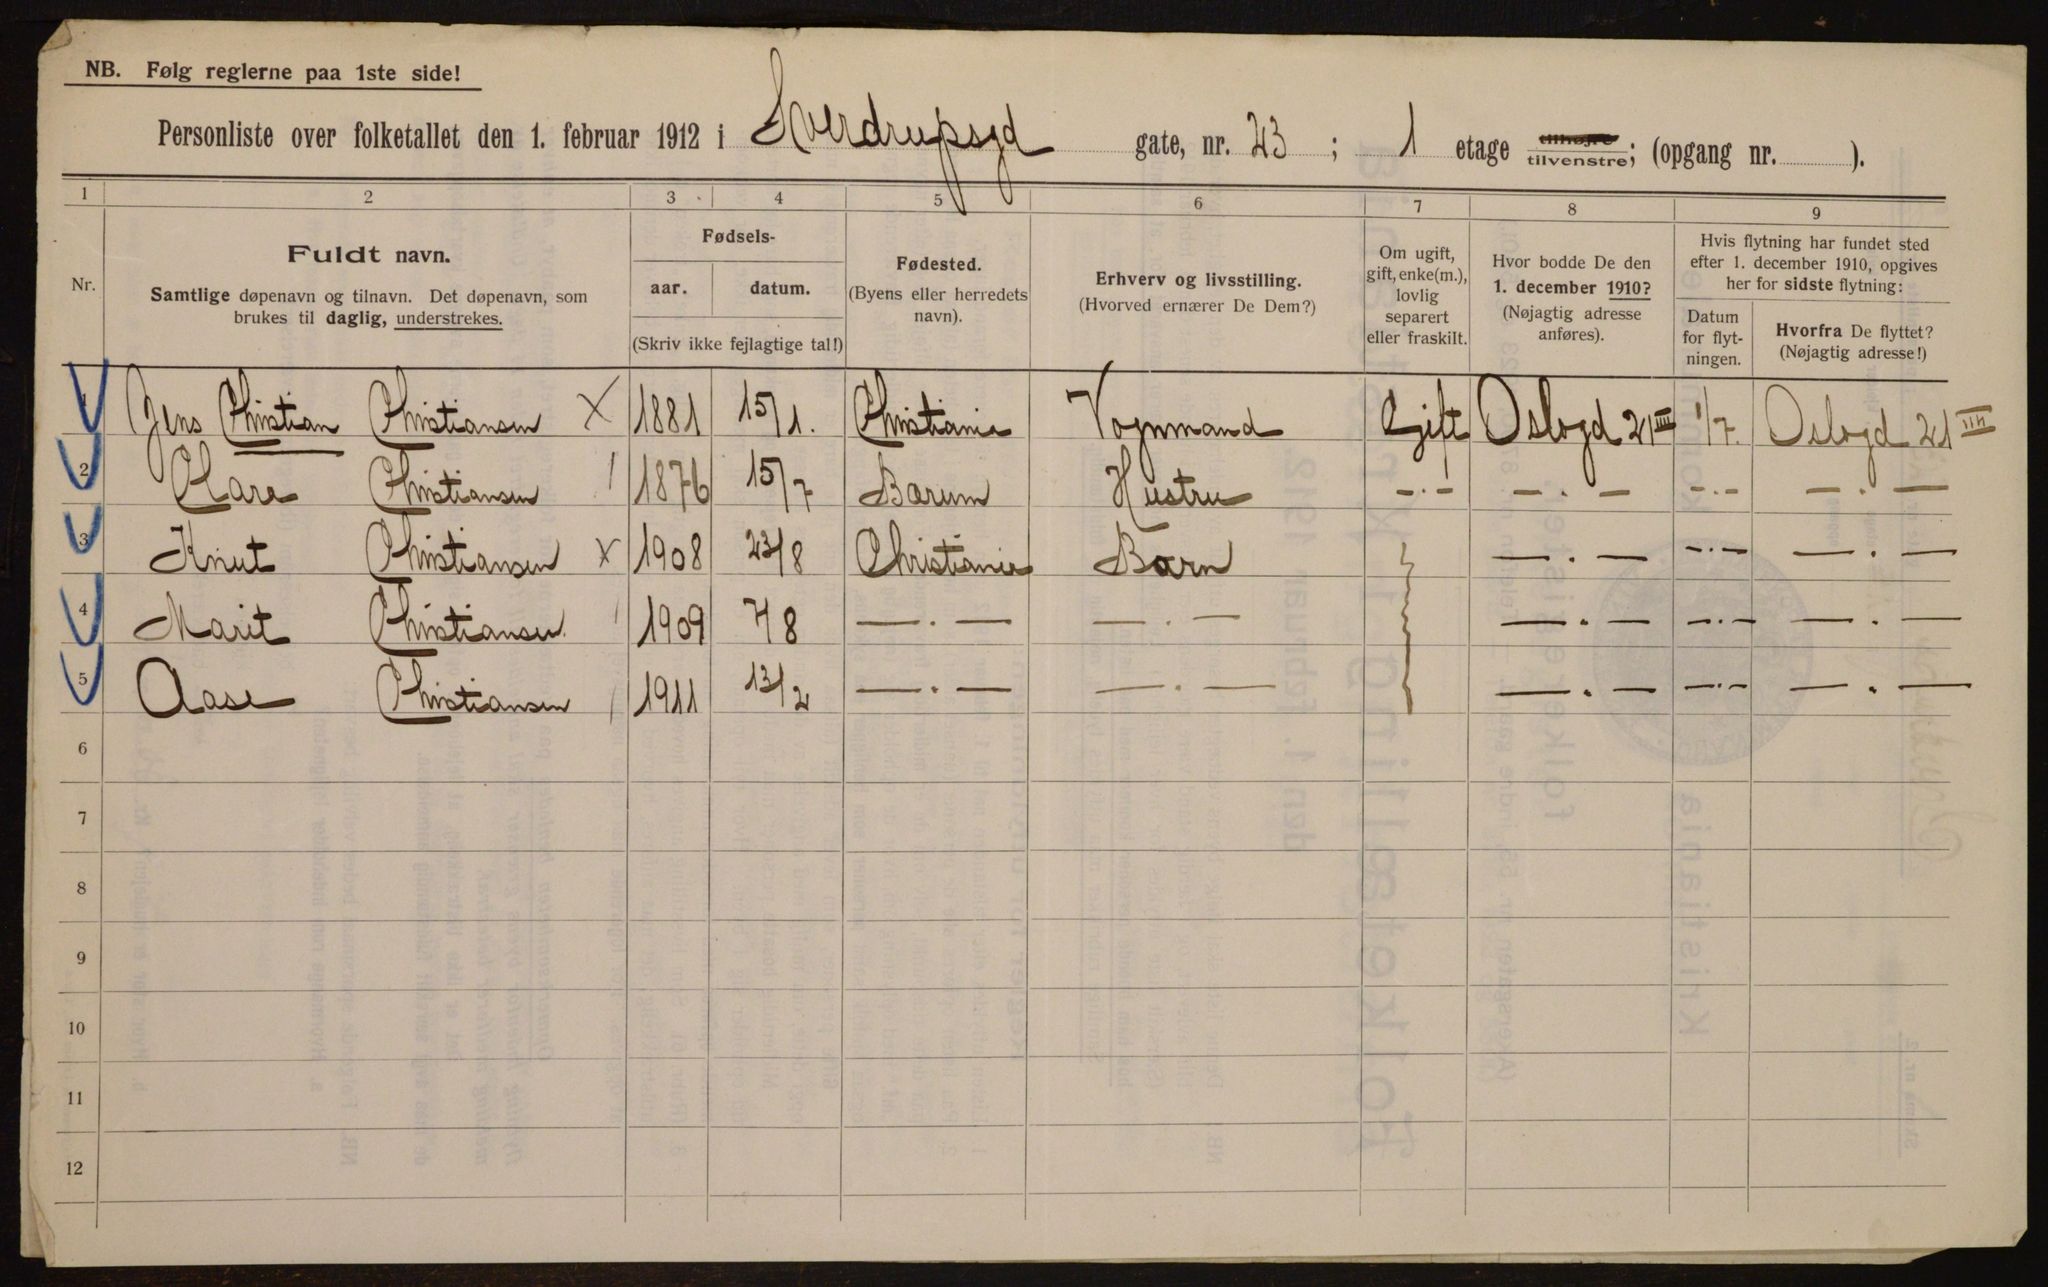 NB. Følg reglerne paa 1ste side!
Personliste over folketallet den 1. februar 1912 i Sverdrupsgd gate, nr. 23; 1 etage tilhøjre tilvenstre; (opgang nr. ).
1 2 3 4 5 6 7 8 9
Nr.
Fuldt navn.
Samtlige døpenavn og tilnavn. Det døpenavn, som
brukes til daglig, understrekes.
Fødsels-
aar. datum.
(Skriv ikke fejlagtige tal!)
Fødested.
(Byens eller herredets
navn).
Erhverv og livsstilling.
(Hvorved ernærer De Dem?)
Om ugift,
gift, enke(m.),
lovlig
separert
eller fraskilt.
Hvor bodde De den
1. december 1910?
(Nøjagtig adresse
anføres).
Hvis flytning har fundet sted
efter 1. december 1910, opgives
her for sidste flytning:
Datum
for flyt-
ningen.
Hvorfra De flyttet?
(Nøjagtig adresse!)
1 Jens Christian Christiansen X 1881 15/1. Christiania Vognmand Gift Oslogd 21 III 1/7. Oslogd 21 III
2 Clara Christiansen / 1876 15/7 Bærum Hustru —·— —·— —·— —·—
3 Knut Christiansen x 1908 23/8 Christiania Barn —·— —·— —·—
4 Marit Christiansen / 1909 7/8 —·— —·— —·— —·— —·—
5 Aase Christiansen / 1911 13/2 —·— —·— —·— —·— —·—
6
7
8
9
10
11
12